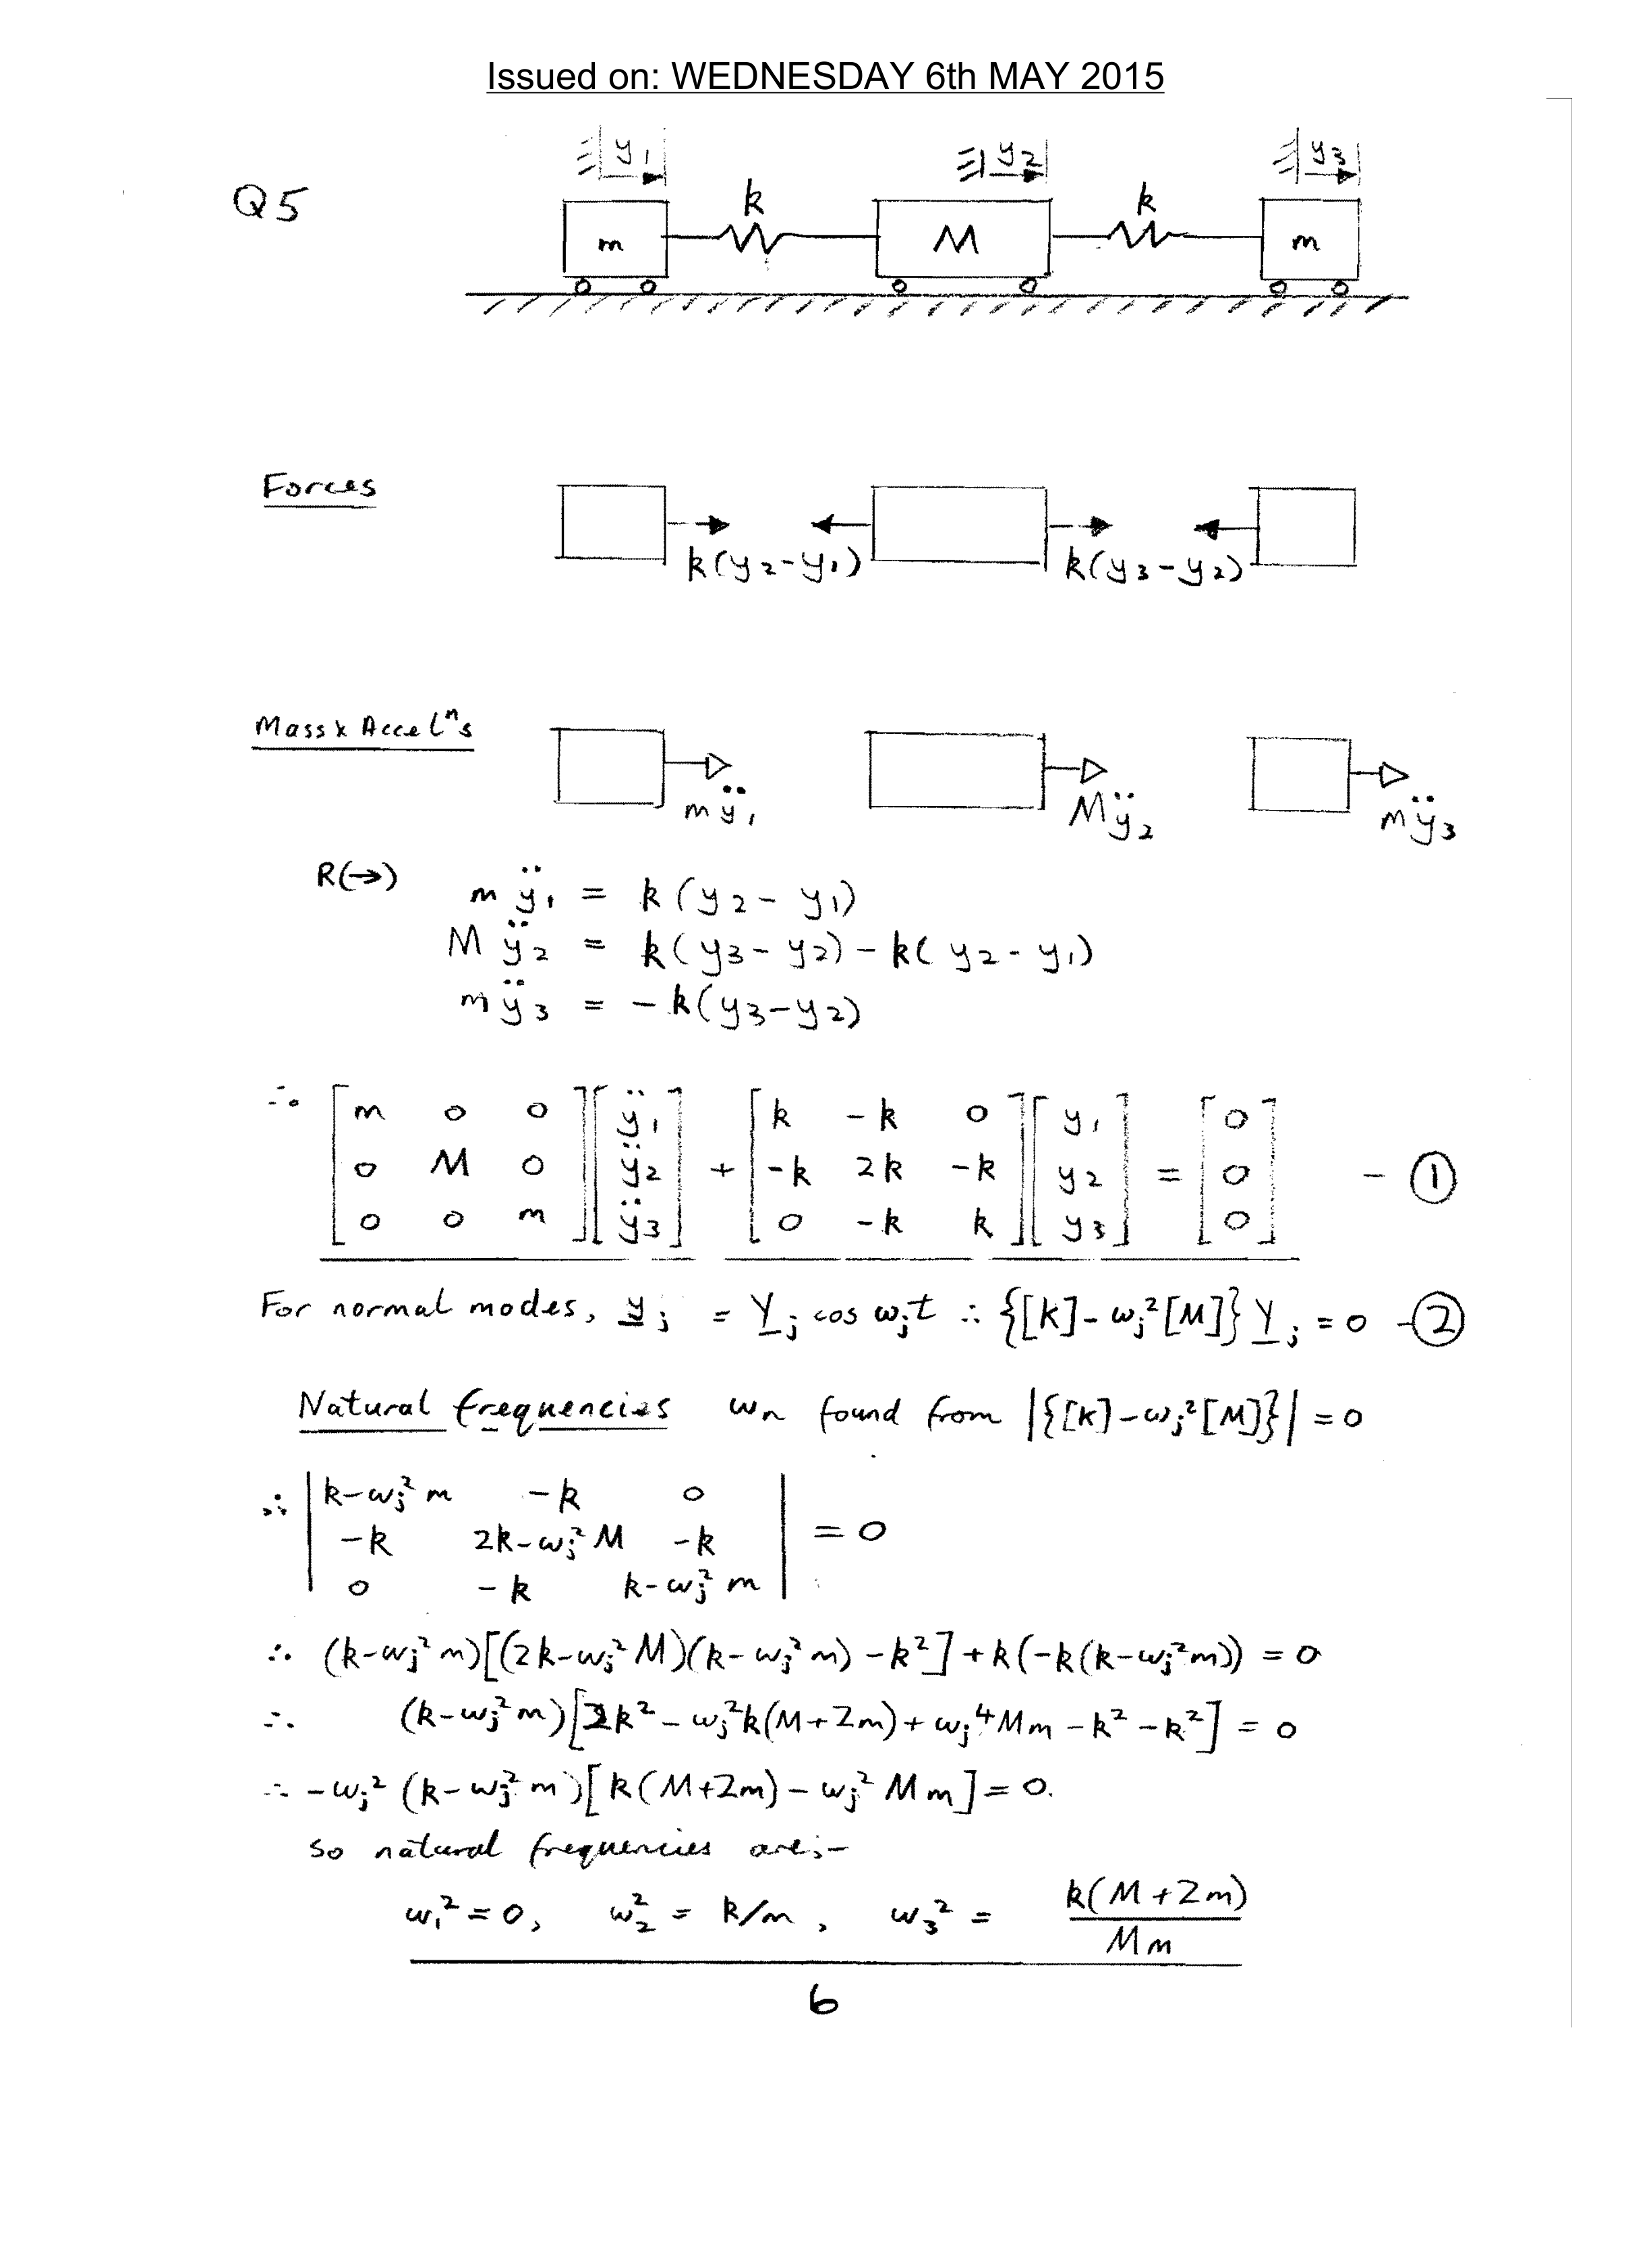 Issued on: WEDNESDAY 6th MAY 2015
y₁ y₂ y₃
Q5
k k
m M m
Forces
k(y₂-y₁) k(y₃-y₂)
Mass x Accelⁿs
mÿ₁ Mÿ₂ mÿ₃
R(→) m ÿ₁ = k(y₂ - y₁)
M ÿ₂ = k(y₃ - y₂) - k(y₂ - y₁)
m ÿ₃ = -k(y₃-y₂)
∴ [m 0 0] [ÿ₁] + [k -k 0] [y₁] = [0]
[0 M 0] [ÿ₂] [-k 2k -k] [y₂] [0] - ①
[0 0 m] [ÿ₃] [0 -k k] [y₃] [0]
For normal modes, y_j = Y_j cos ω_j t ∴ {[K] - ω_j²[M]} Y_j = 0 - ②
Natural frequencies ωn found from |{[K] - ω_j²[M]}| = 0
∴ | k-ω_j²m -k 0 |
| -k 2k-ω_j²M -k | = 0
| 0 -k k-ω_j²m |
∴ (k-ω_j²m)[(2k-ω_j²M)(k-ω_j²m) - k²] + k(-k(k-ω_j²m)) = 0
∴ (k-ω_j²m)[2k² - ω_j²k(M+2m) + ω_j⁴Mm - k² - k²] = 0
∴ -ω_j²(k-ω_j²m)[k(M+2m) - ω_j²Mm] = 0.
So natural frequencies are:-
ω₁² = 0, ω₂² = k/m, ω₃² = k(M+2m)
Mm
6